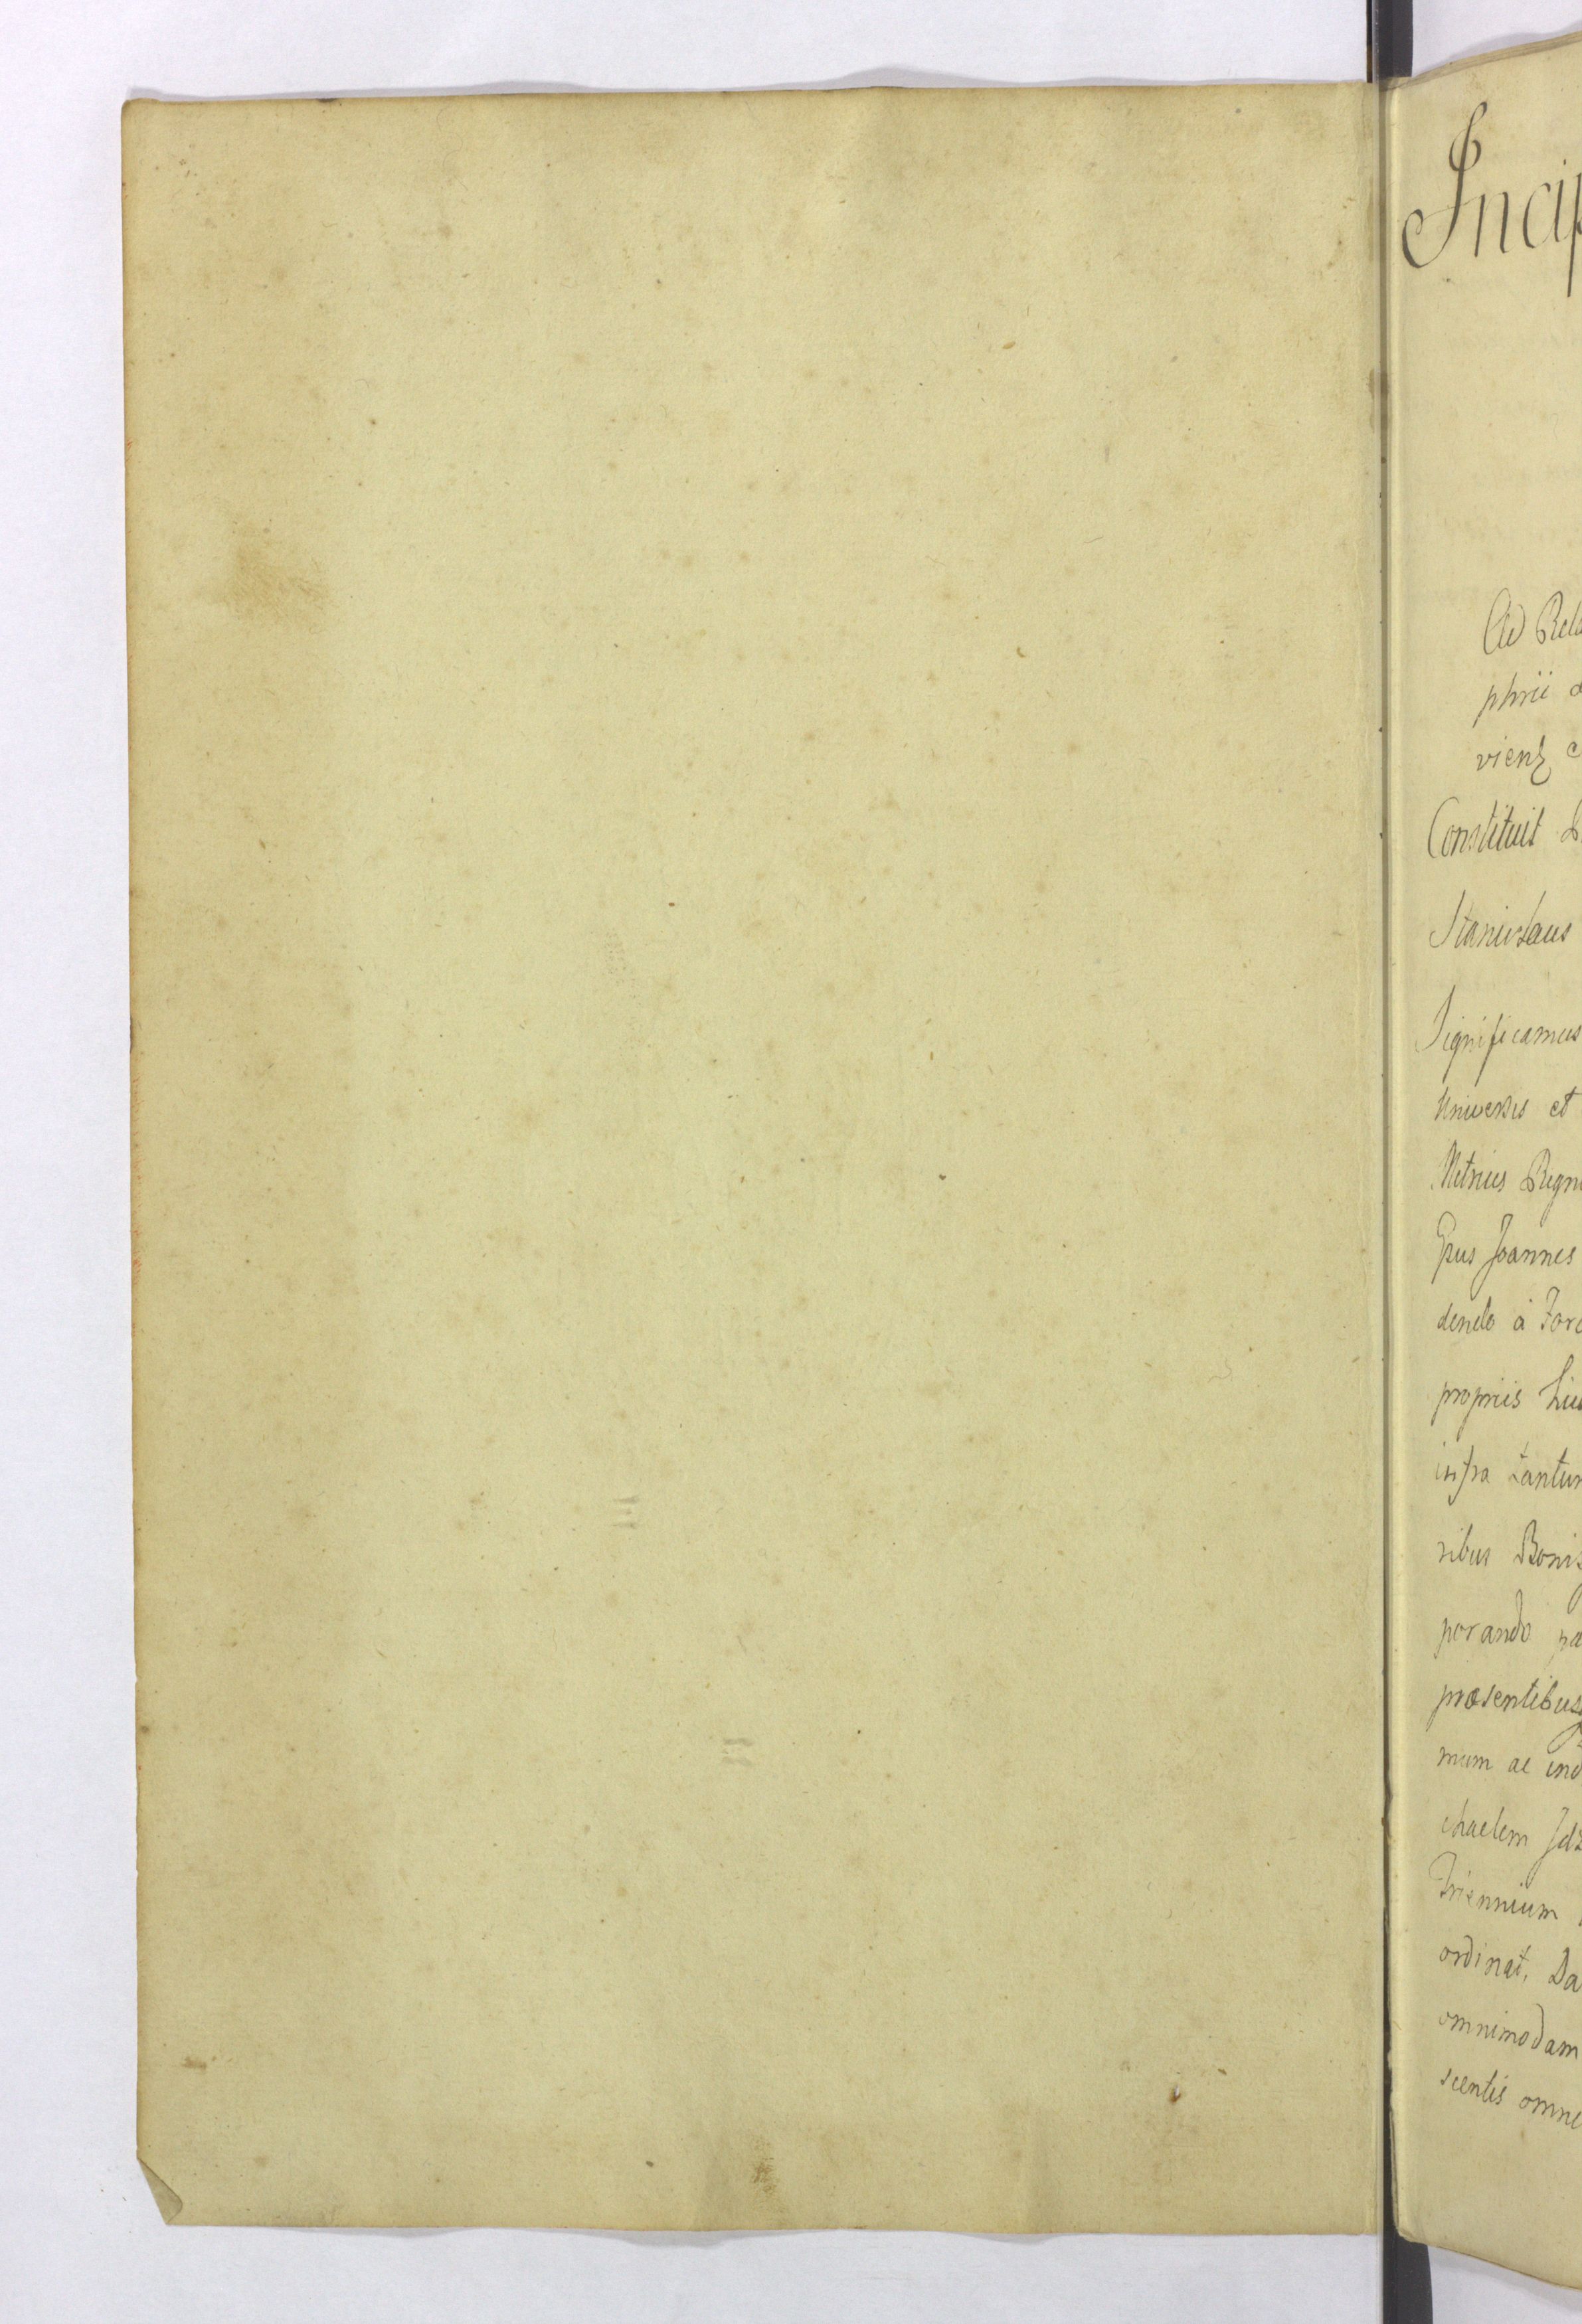 Incip
Ad Rela
phrii
vienz
Constituit
Stanislaus
Significamus
Universis et
Metrices Regni
Joannes
dendo à Foro
propriis
infra tantum
ribus Bonis
porando
praesentibusq
mum ac ind
chaelem
Triennium
ordinat. Da
omnimodam
scentis omne